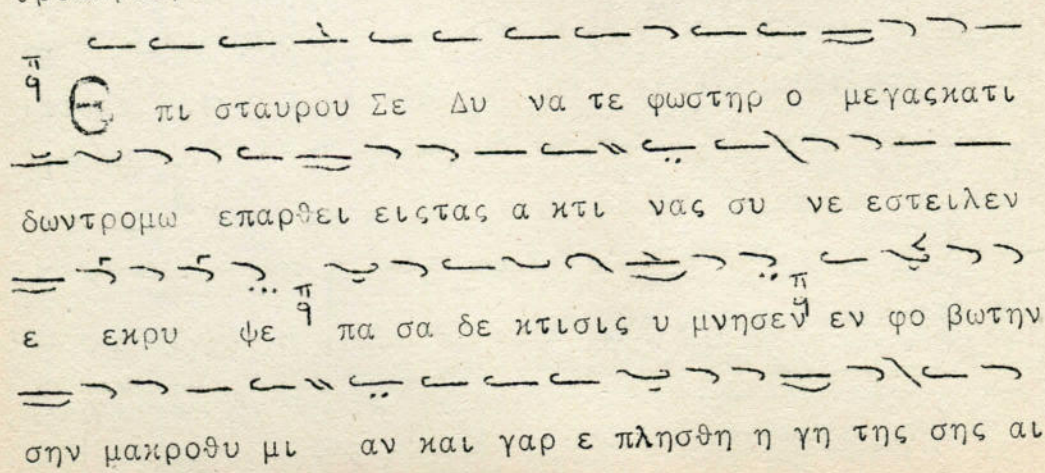 Ε πι σταυρου Σε Δυ να τε φωστηρ ο μεγαςκατι
δωντρομω επαρθει ειςτας α κτι νας συ νε εστειλεν
ε εκρυ ψε πα σα δε κτισις υ μνησεν εν φο βωτην
σην μακροθυ μι αν και γαρ ε πλησθη η γη της σης αι